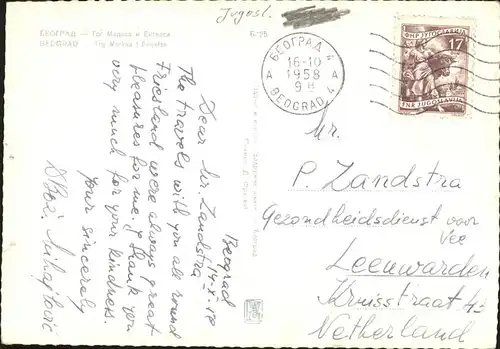 Jugosl.
БЕОГРАД — Трг Маркса и Енгелса
BEOGRAD Trg Marksa i Engelsa
6/25
БЕОГРАД 4
16-10
1958
9
A A
BEOGRAD 4
ФНР ЈУГОСЛАВИЈА
17
FNR JUGOSLAVIJA
Beograd
14-X-58
Dear Mr. Zandstra
The travels with you all round
Friesland were always great
pleasures for me. I thank you
very much for your kindness.
Your sincerely
Mihajlović
Mr.
P. Zandstra
Gezondheidsdienst voor
Vee
Leeuwarden
Kruisstraat
Netherland